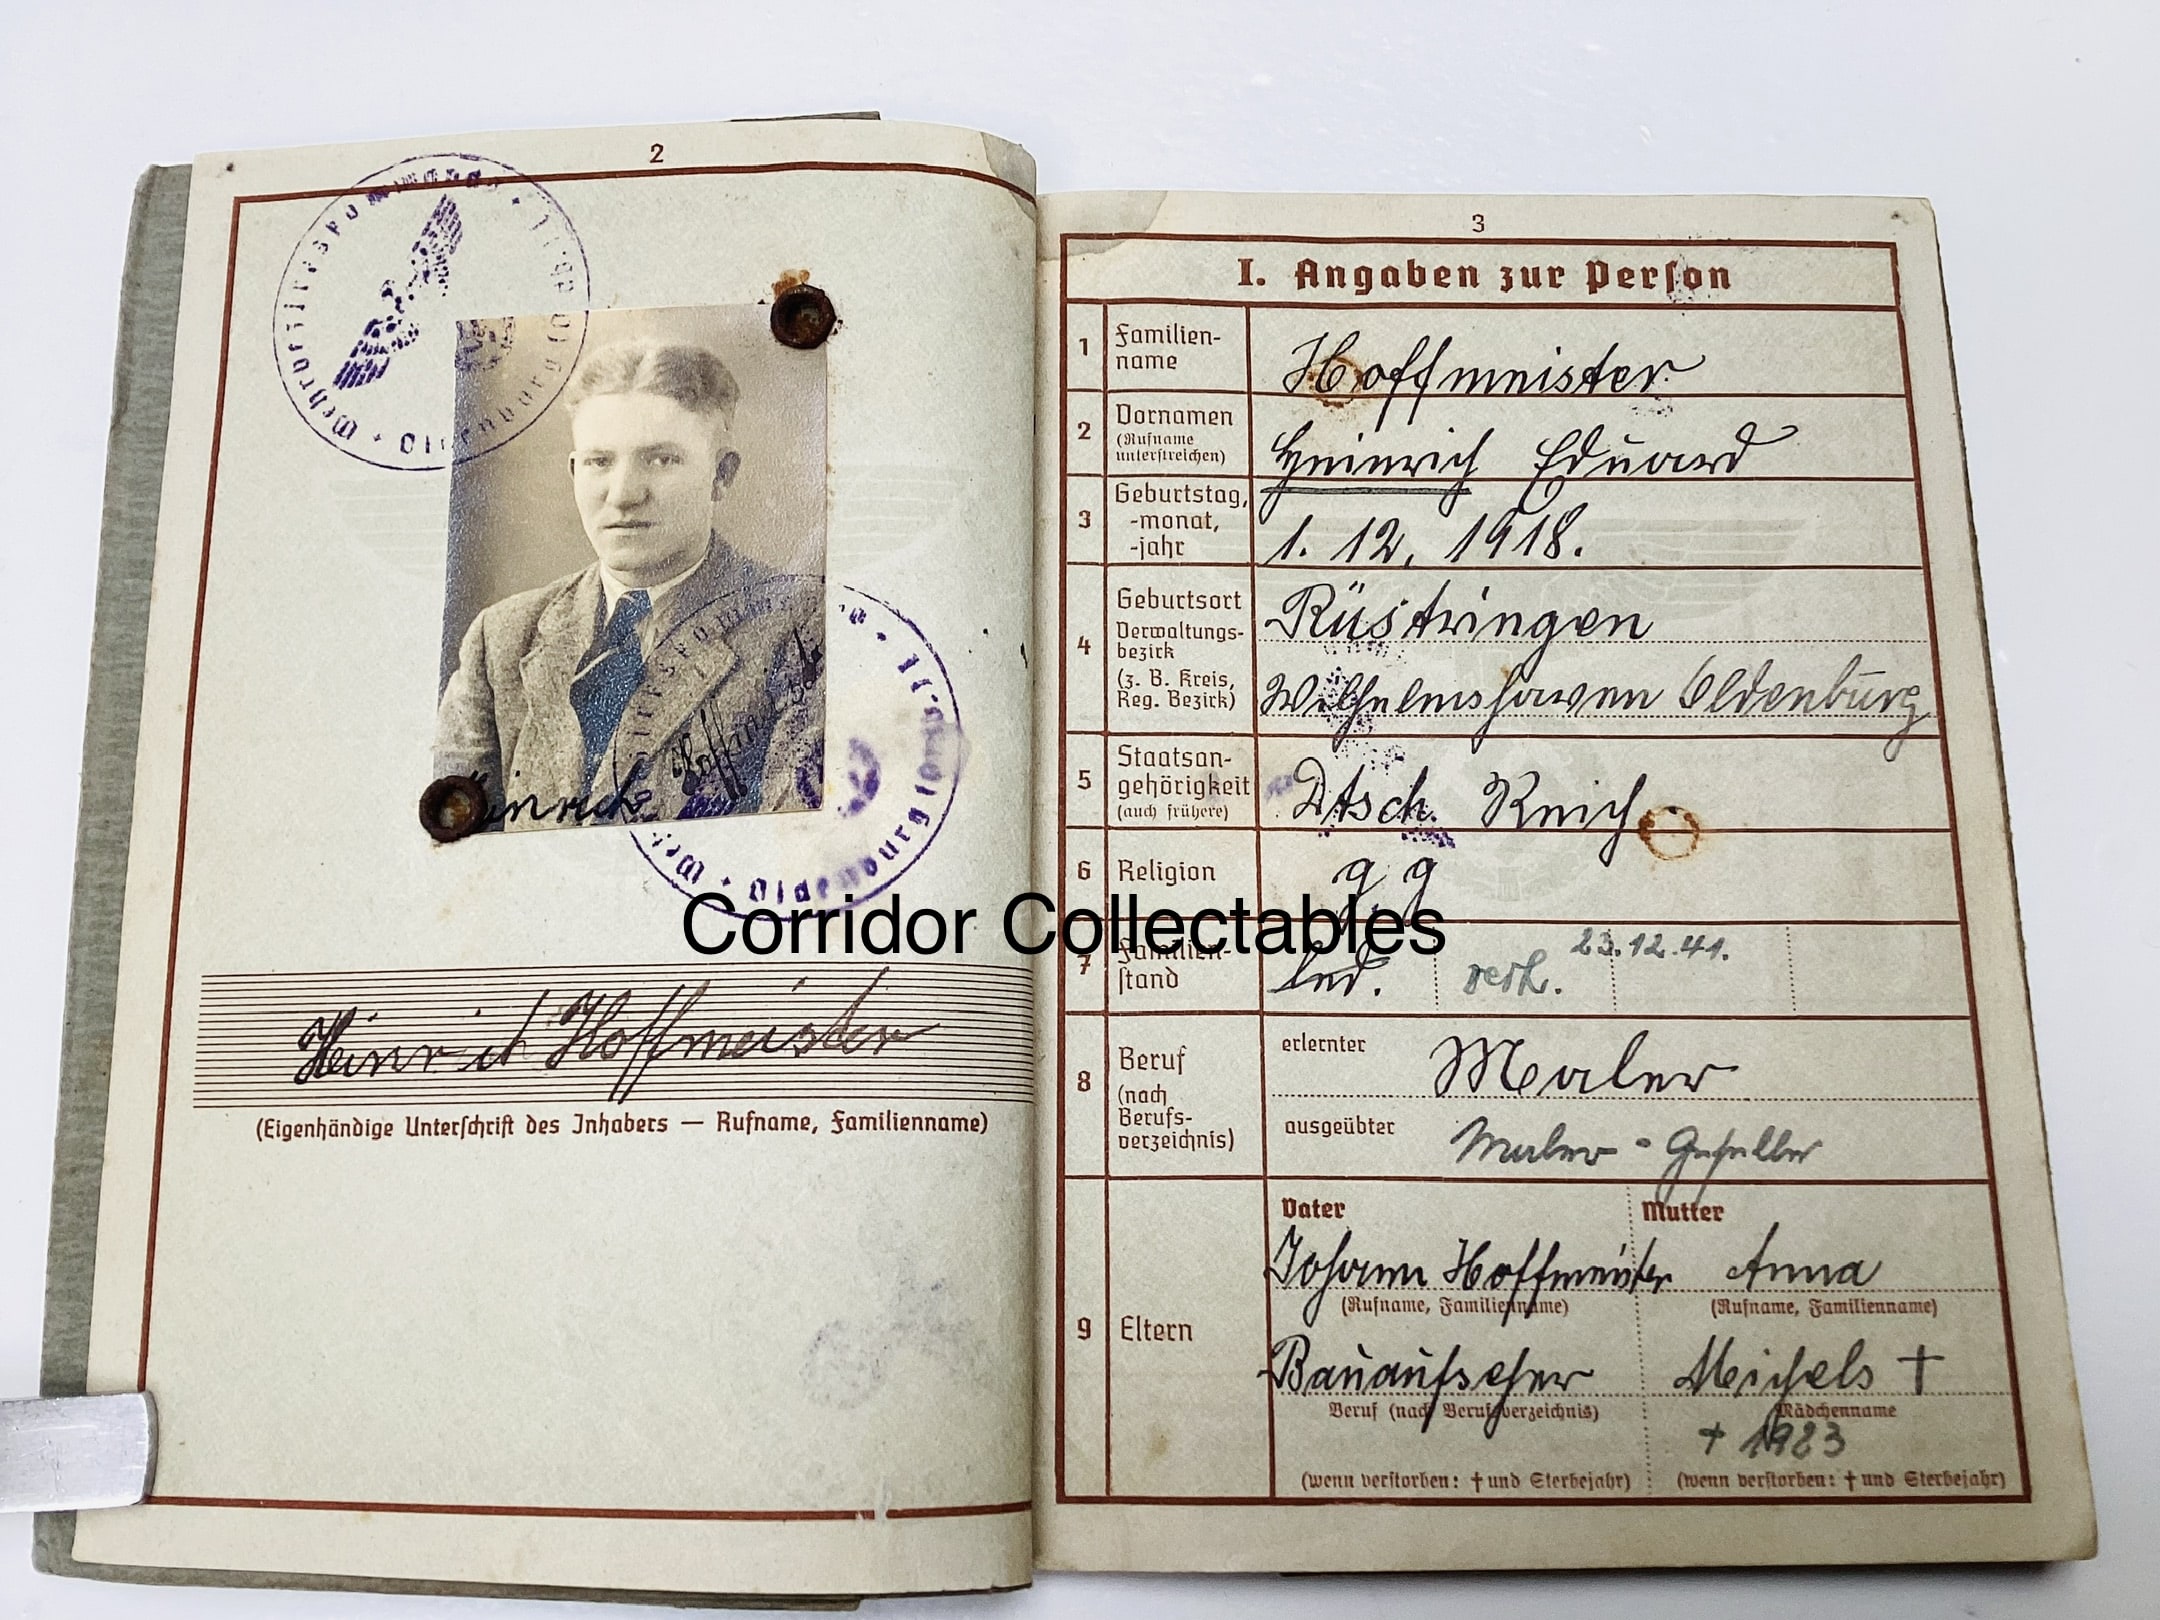 2
Wehrbezirkskommando
Oldenburg (Oldb)
Heinrich Hoffmeister
Wehrbezirkskommando
Oldenburg (Oldb)
Heinrich Hoffmeister
(Eigenhändige Unterschrift des Inhabers — Rufname, Familienname)
Corridor Collectables
3
I. Angaben zur Person
1 Familien-
name
Hoffmeister
2 Vornamen
(Rufname
unterstreichen)
Heinrich Eduard
3 Geburtstag,
-monat,
-jahr
1. 12. 1918.
4 Geburtsort
Verwaltungs-
bezirk
(z. B. Kreis,
Reg. Bezirk)
Rüstringen
Wilhelmshaven Oldenburg
5 Staatsan-
gehörigkeit
(auch frühere)
Dtsch. Reich
6 Religion
g. g
7 Familien-
stand
led. verh. 23.12.41.
8 Beruf
(nach
Berufs-
verzeichnis)
erlernter Maler
ausgeübter Maler-Geselle
9 Eltern
Vater Mutter
Johann Hoffmeister Anna
(Rufname, Familienname) (Rufname, Familienname)
Bauaufseher Meichels †
Beruf (nach Berufsverzeichnis) Mädchenname
† 1923
(wenn verstorben: † und Sterbejahr) (wenn verstorben: † und Sterbejahr)